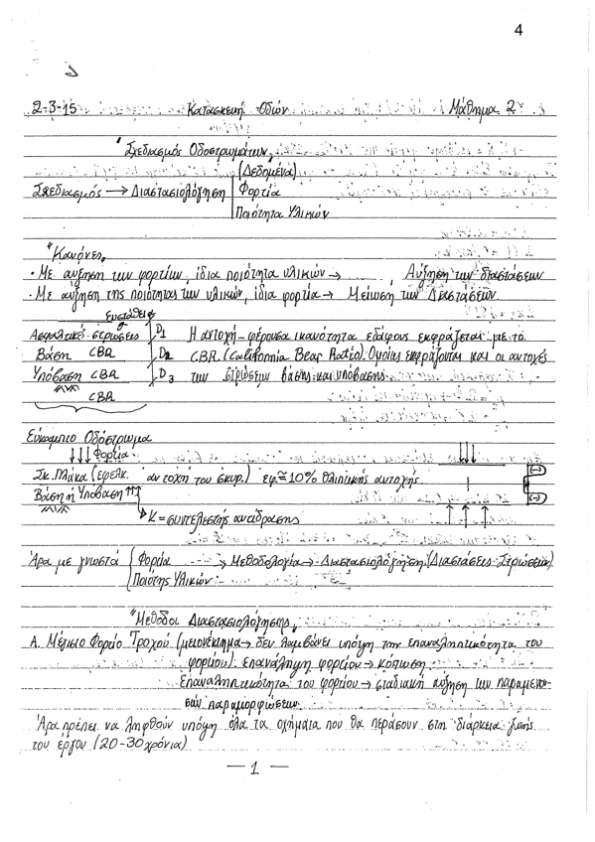 4
2-3-15 Κατασκευή Οδών Μάθημα 2
"Σχεδιασμός Οδοστρωμάτων"
(Δεδομένα)
Σχεδιασμός → Διαστασιολόγηση Φορτία
Ποιότητα Υλικών
"Κανόνες"
· Με αύξηση των φορτίων, ίδια ποιότητα υλικών → Αύξηση των διαστάσεων
· Με αύξηση της ποιότητας των υλικών, ίδια φορτία → Μείωση των Διαστάσεων.
Ασφαλτικές στρώσεις D1 Η αντοχή - φέρουσα ικανότητα εδάφους εκφράζεται με το
Βάση CBR D2 CBR (California Bear Ratio). Ομοίως εκφράζονται και οι αντοχές
Υπόβαση CBR D3 των στρώσεων βάσης και υπόβασης.
CBR
Εύκαμπτο Οδόστρωμα
↓↓↓ Φορτία
Σκ. Πλάκα (εφελκ. αντοχή του σκυρ.) εφ. ≅ 10% θλιπτικής αντοχής.
Βάση ή Υπόβαση ↑↑↑
K = συντελεστής αντίδρασης
Άρα με γνωστά Φορτία → Μεθοδολογία → Διαστασιολόγηση (Διαστάσεις Στρώσεων)
Ποιότης Υλικών
"Μέθοδοι Διαστασιολόγησης"
Α. Μέγιστο Φορτίο Τροχού (μειονέκτημα → δεν λαμβάνει υπόψη την επαναληπτικότητα του
φορτίου). επανάληψη φορτίου → κόπωση
Επαναληπτικότητα του φορτίου → σταδιακή αύξηση των παραμενο-
σών παραμορφώσεων.
Άρα πρέπει να ληφθούν υπόψη όλα τα οχήματα που θα περάσουν στη διάρκεια ζωής
του έργου (20-30 χρόνια)
— 1 —